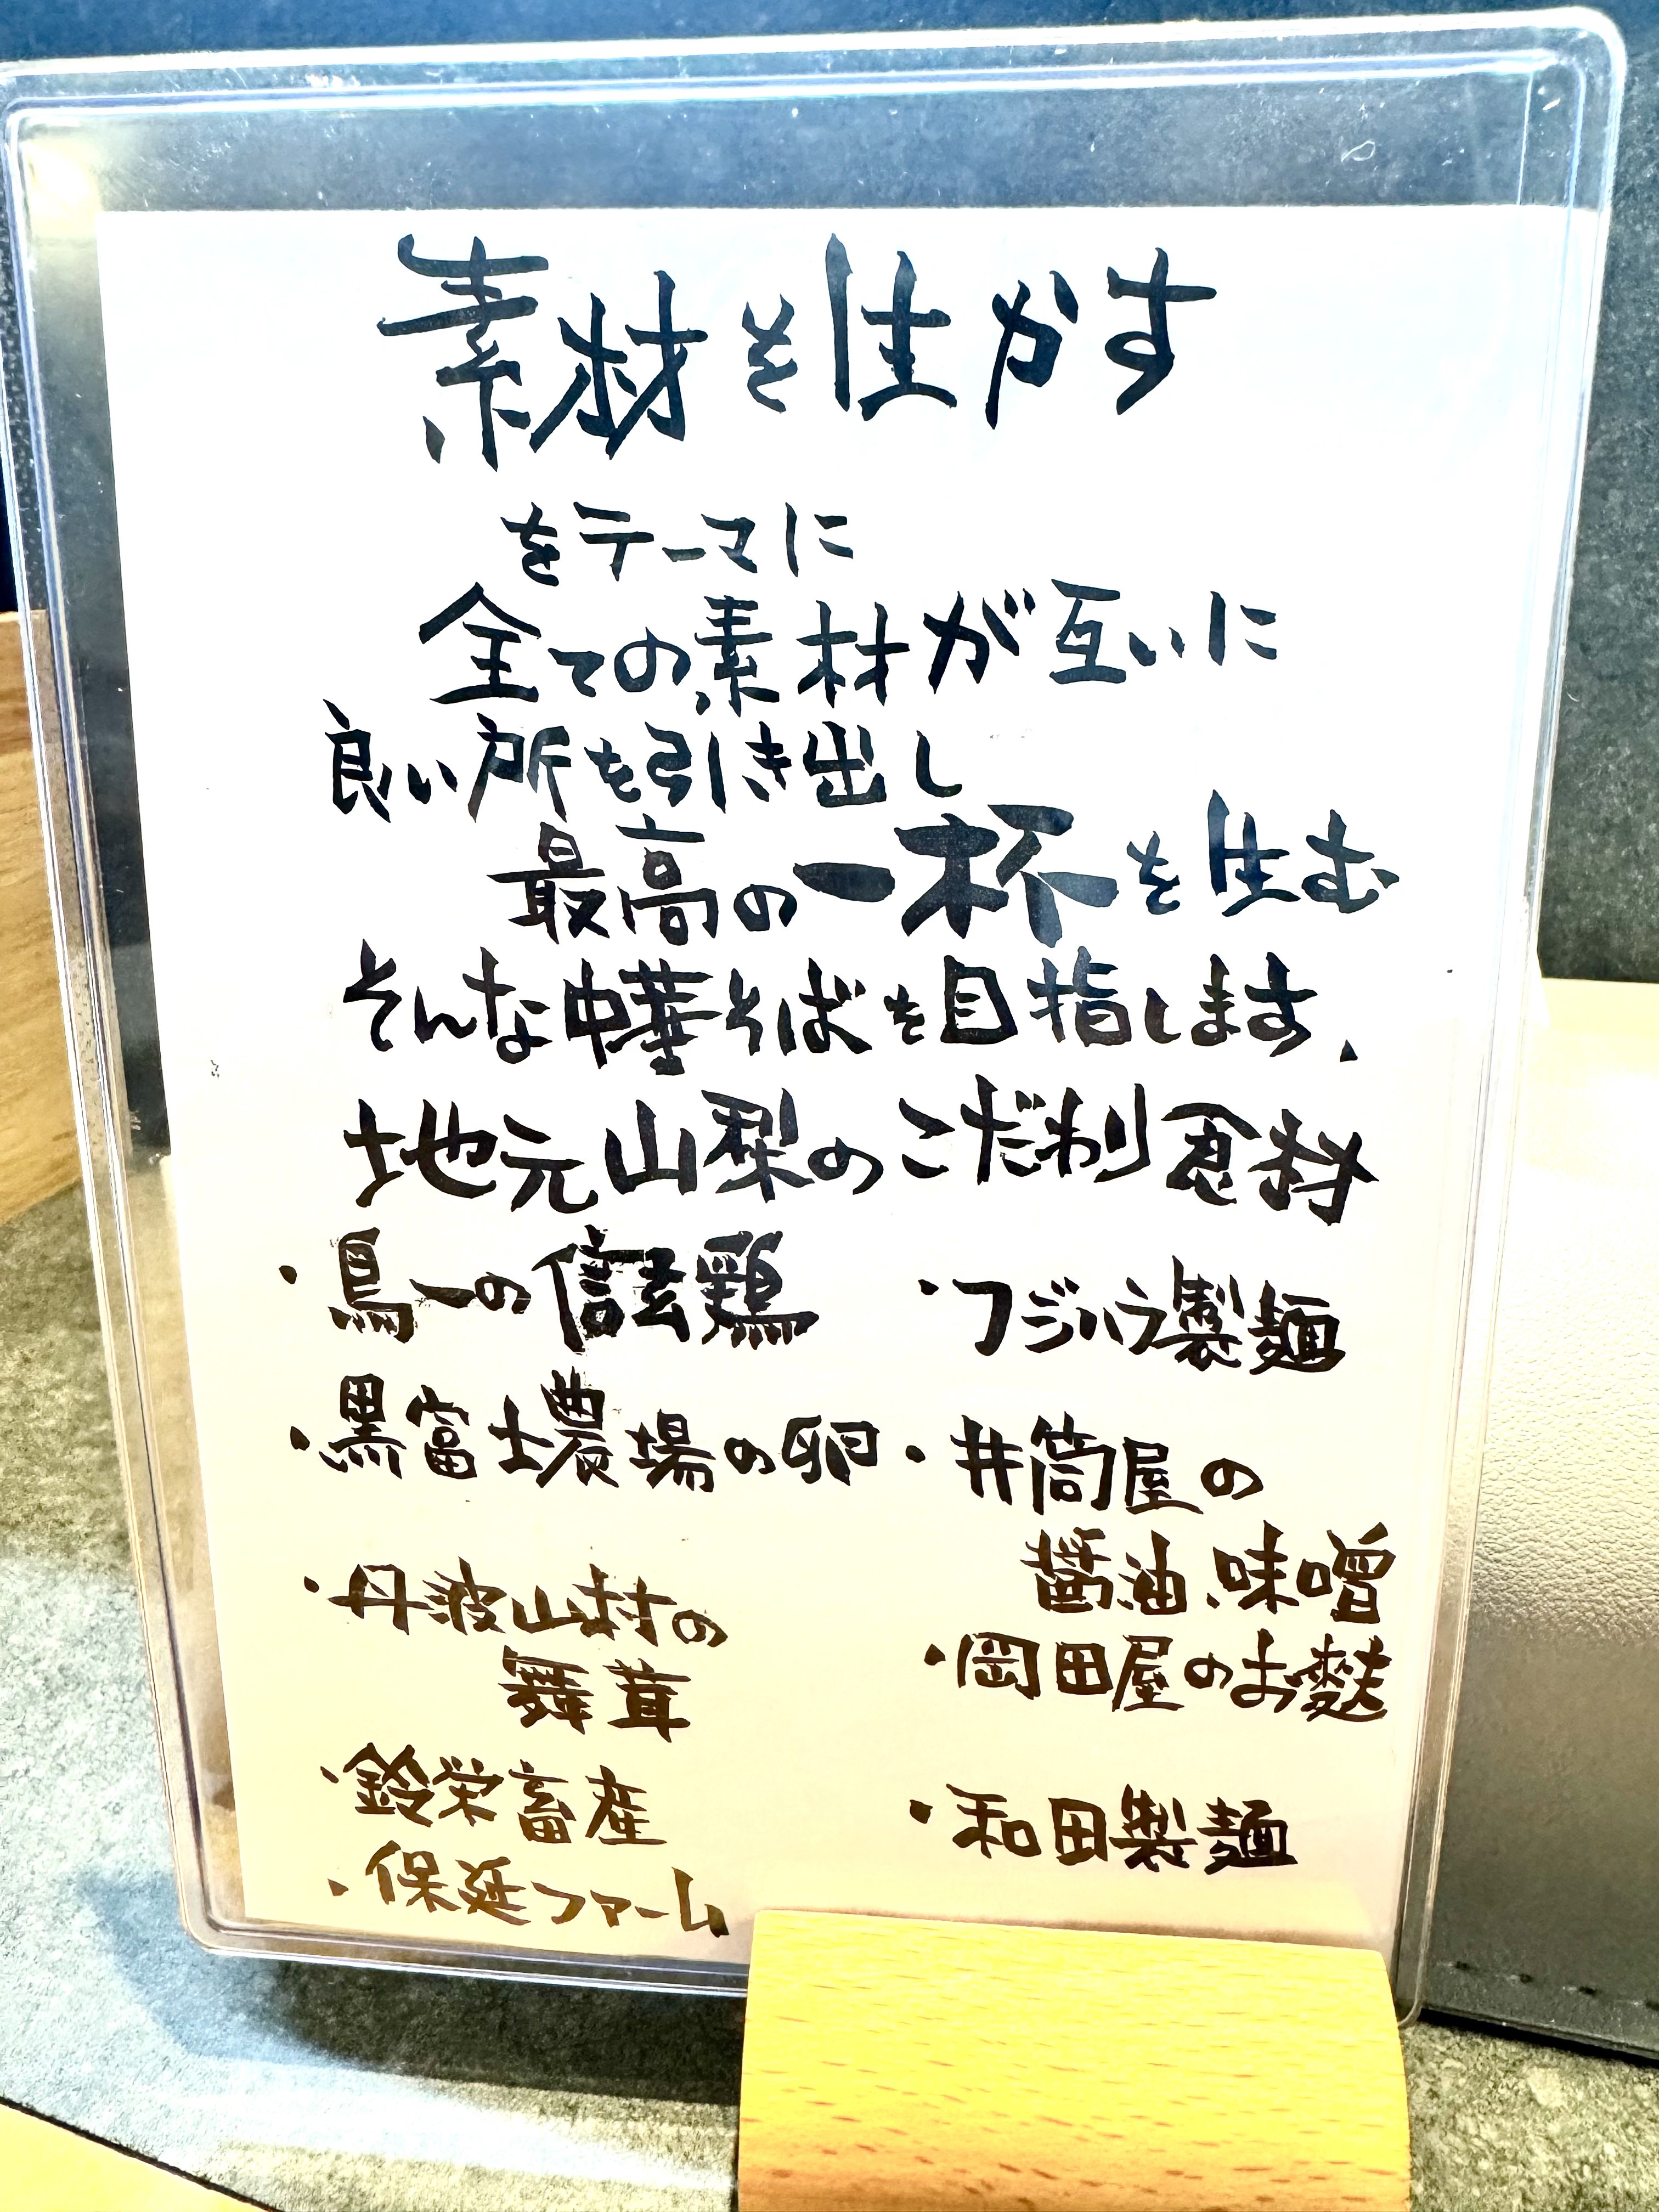 素材を生かす
をテーマに
全ての素材が互いに
良い所を引き出し
最高の一杯を生む
そんな中華そばを目指します.
地元山梨のこだわり食材
・鳥一の信玄鶏
・黒富士農場の卵
・丹波山村の
舞茸
・鈴栄畜産
・保延ファーム
・フジハラ製麺
・井筒屋の
醤油、味噌
・岡田屋のお麩
・和田製麺